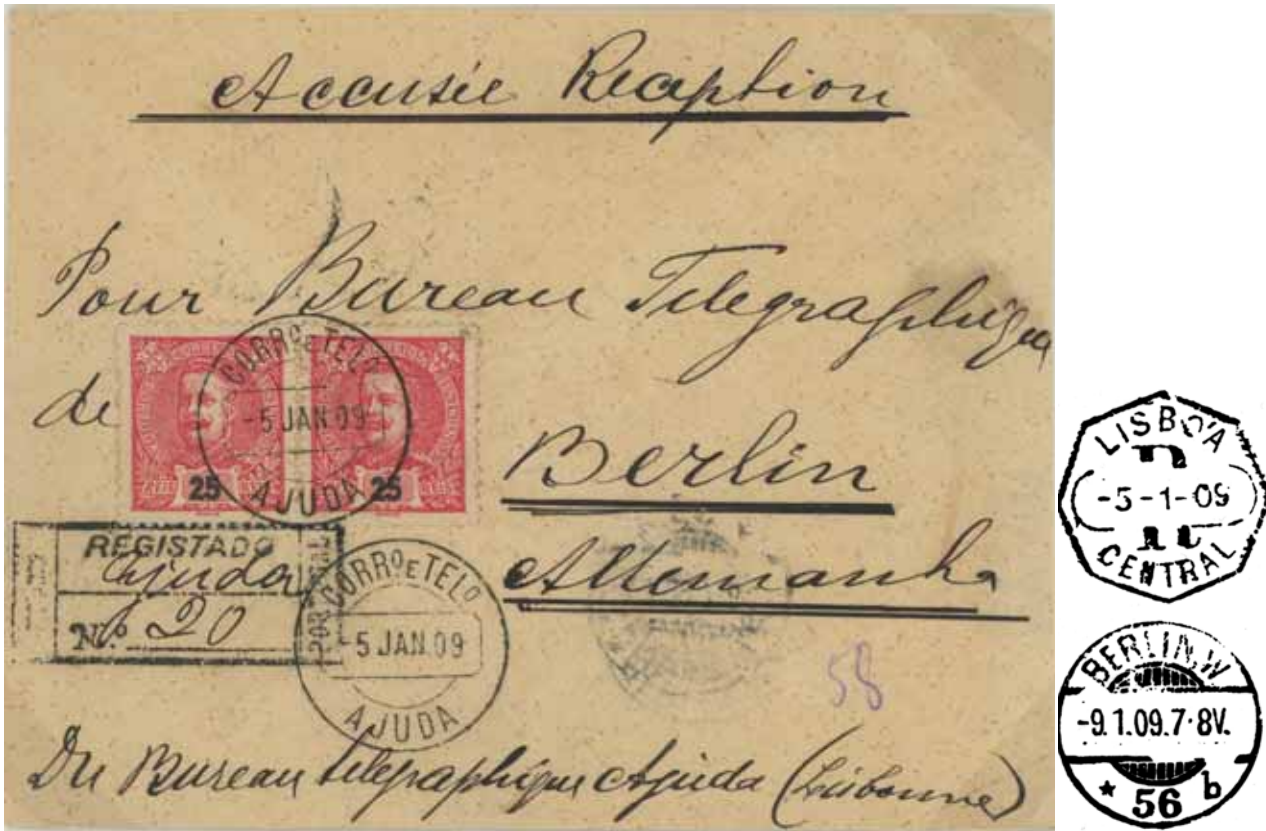 Accusée Reception
Pour Bureau Telegraphique
de
CORRº E TELº
-5 JAN 09
AJUDA
25 25
Berlin
Allemanha
REGISTADO
Ajuda
N.º 20
PORTUGAL
CORRº E TELº
-5 JAN.09
AJUDA
58
Du Bureau telegraphique Ajuda (Lisbonne)
LISBOA
-5-1-09
CENTRAL
BERLIN, W
-9.1.09.7-8V.
* 56 b